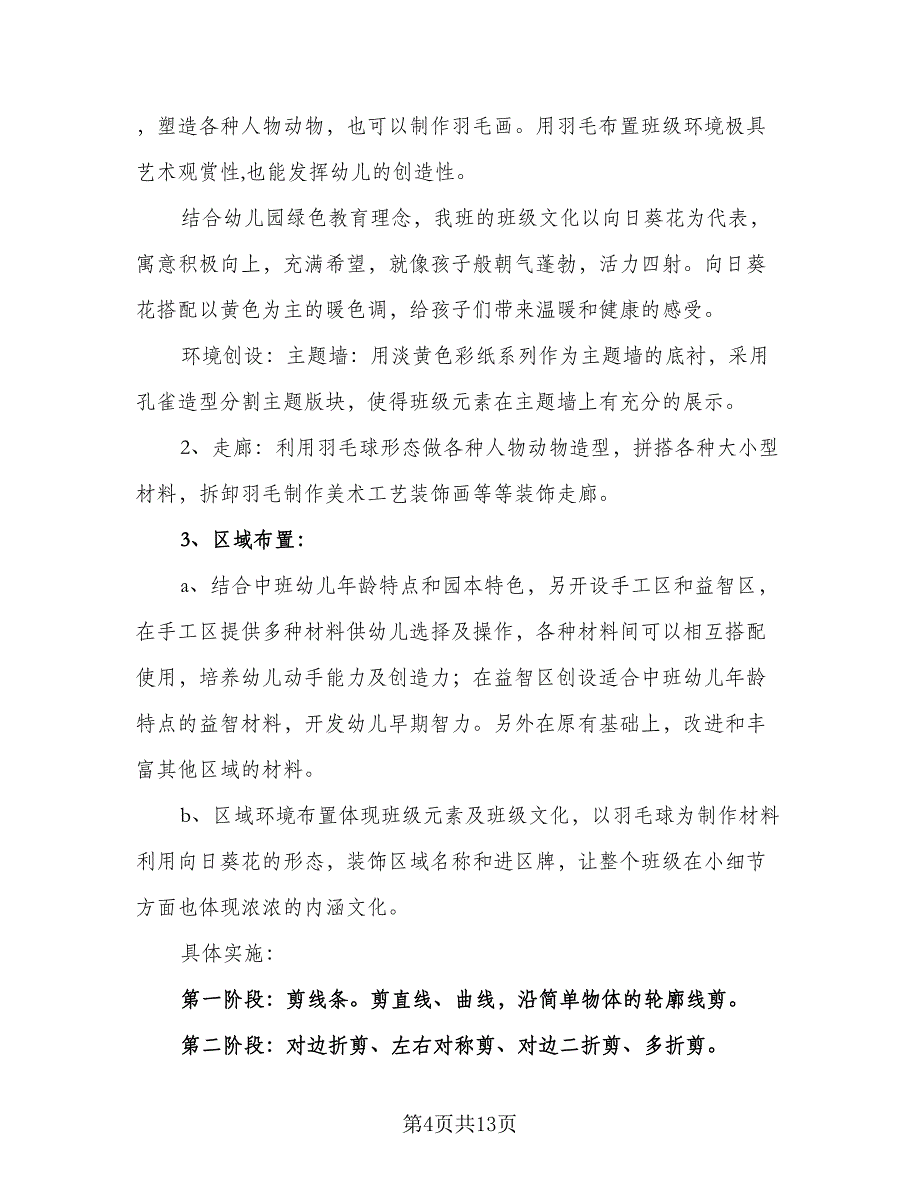 ，塑造各种人物动物，也可以制作羽毛画。用羽毛布置班级环境极具
艺术观赏性,也能发挥幼儿的创造性。
结合幼儿园绿色教育理念，我班的班级文化以向日葵花为代表，
寓意积极向上，充满希望，就像孩子般朝气蓬勃，活力四射。向日葵
花搭配以黄色为主的暖色调，给孩子们带来温暖和健康的感受。
环境创设：主题墙：用淡黄色彩纸系列作为主题墙的底衬，采用
孔雀造型分割主题版块，使得班级元素在主题墙上有充分的展示。
2、走廊：利用羽毛球形态做各种人物动物造型，拼搭各种大小型
材料，拆卸羽毛制作美术工艺装饰画等等装饰走廊。
3、区域布置：
a、结合中班幼儿年龄特点和园本特色，另开设手工区和益智区，
在手工区提供多种材料供幼儿选择及操作，各种材料间可以相互搭配
使用，培养幼儿动手能力及创造力；在益智区创设适合中班幼儿年龄
特点的益智材料，开发幼儿早期智力。另外在原有基础上，改进和丰
富其他区域的材料。
b、区域环境布置体现班级元素及班级文化，以羽毛球为制作材料
利用向日葵花的形态，装饰区域名称和进区牌，让整个班级在小细节
方面也体现浓浓的内涵文化。
具体实施：
第一阶段：剪线条。剪直线、曲线，沿简单物体的轮廓线剪。
第二阶段：对边折剪、左右对称剪、对边二折剪、多折剪。
第4页共13页